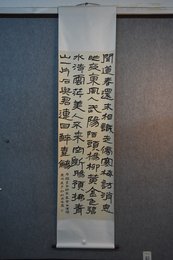 聞道春還未相識走傍寒梅訪消息
昨夜東風入武陽陌頭楊柳黃金色碧
水浩〻雲茫〻美人不來空斷腸預拂青
山一片石與君連日醉壺觴